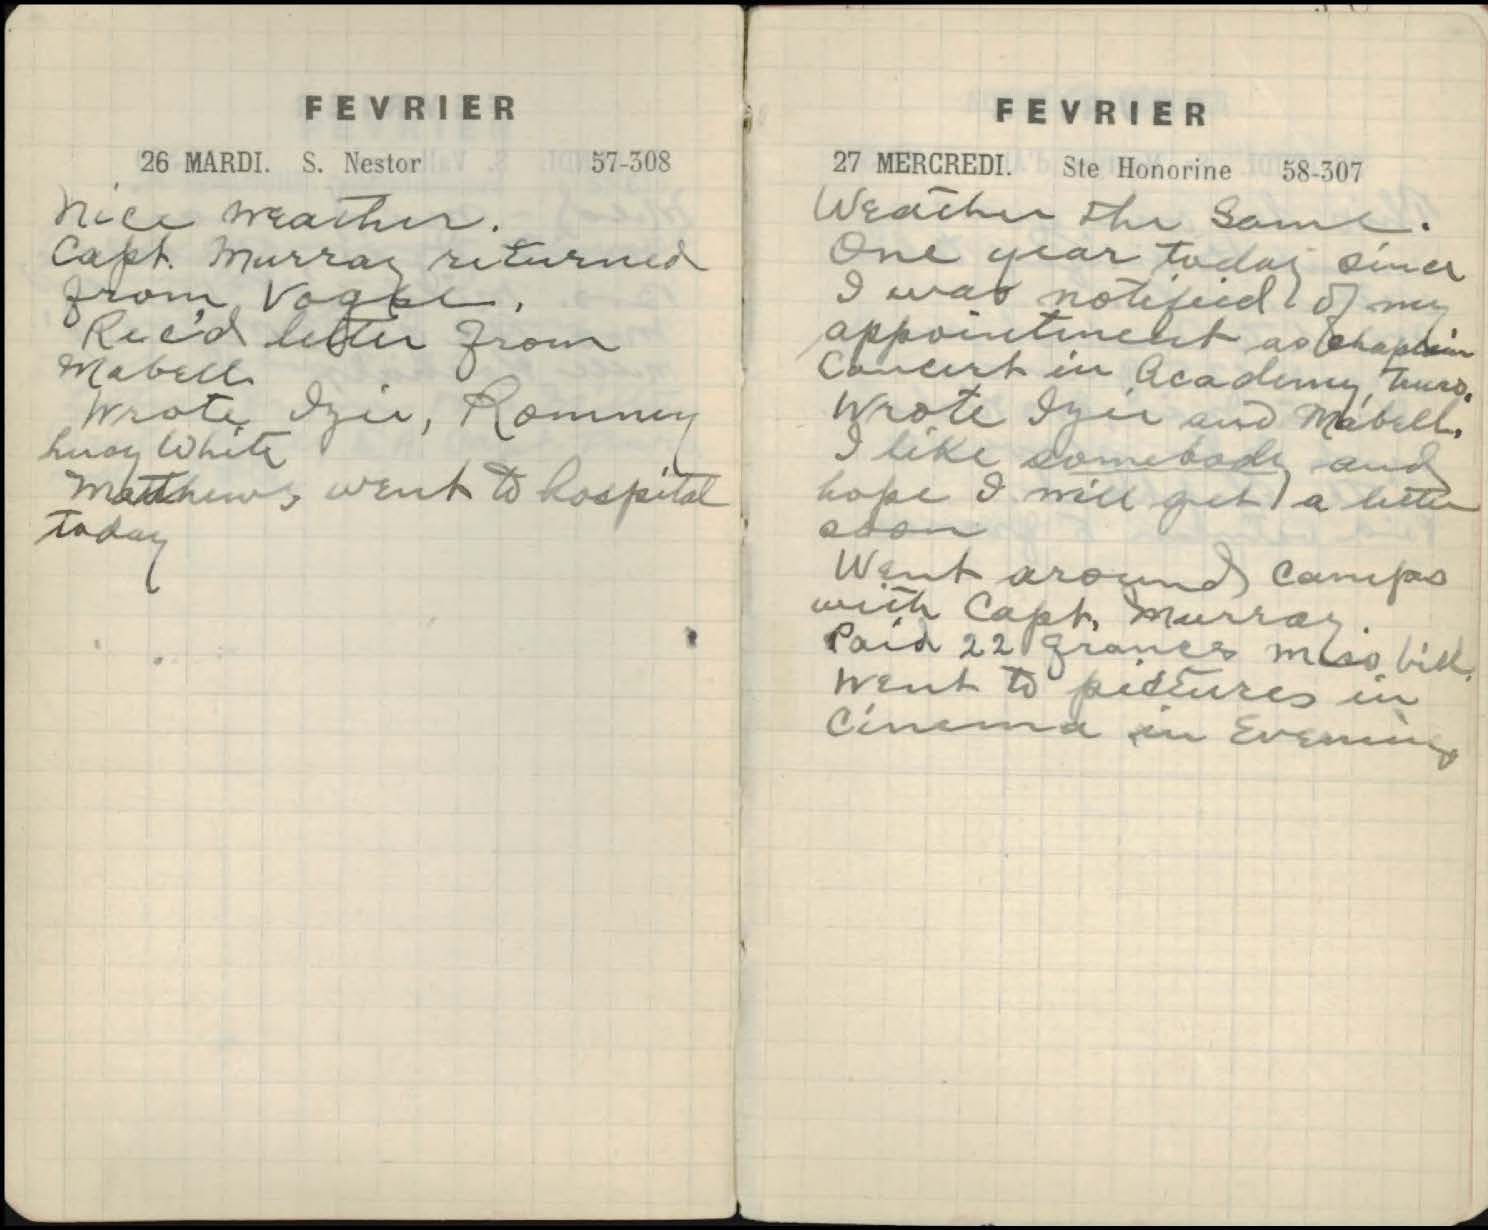 FEVRIER
26 MARDI. S. Nestor 57-308
Nice weather.
Capt. Murray returned
from
Rec'd letter from
Mabell
Wrote Izie, Romney
White
Matthews, went to hospital
today
FEVRIER
27 MERCREDI. Ste Honorine 58-307
Weather the Same.
One year today since
I was notified of my
appointment as Chaplain
Concert in Academy,
Wrote Izie and Mabell.
I like somebody and
hope I will get a letter
soon
Went around camps
with Capt. Murray.
Paid 22 francs mess bill.
Went to pictures in
Cinema in Evening